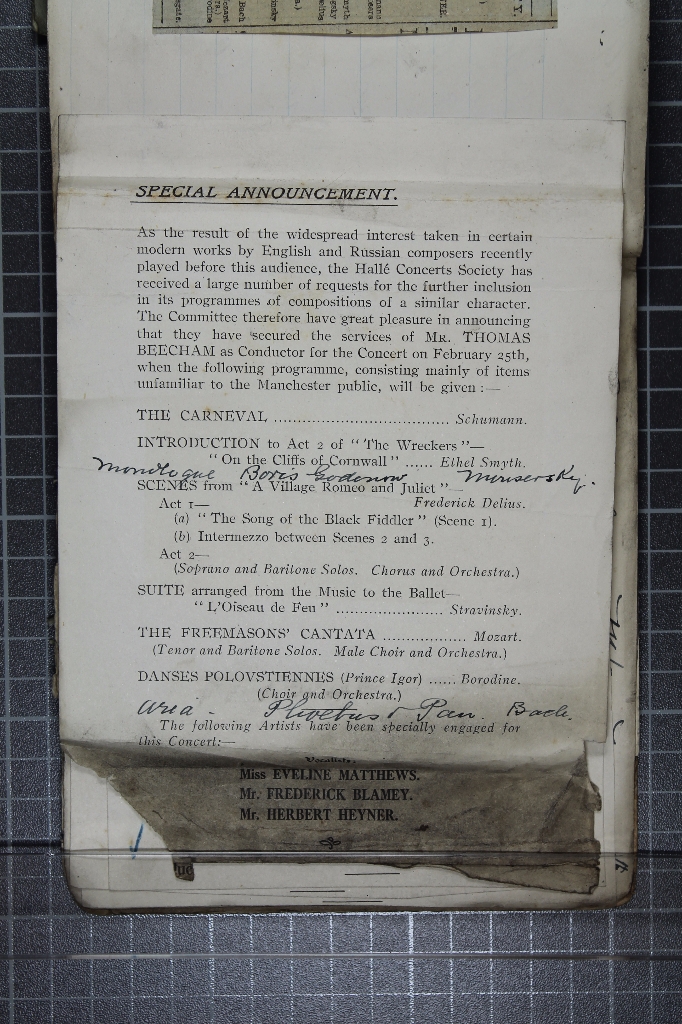 SPECIAL ANNOUNCEMENT.
As the result of the widespread interest taken in certain
modern works by English and Russian composers recently
played before this audience, the Hallé Concerts Society has
received a large number of requests for the further inclusion
in its programmes of compositions of a similar character.
The Committee therefore have great pleasure in announcing
that they have secured the services of MR. THOMAS
BEECHAM as Conductor for the Concert on February 25th,
when the following programme, consisting mainly of items
unfamiliar to the Manchester public, will be given :—
THE CARNEVAL .................................... Schumann.
INTRODUCTION to Act 2 of "The Wreckers"—
"On the Cliffs of Cornwall" ...... Ethel Smyth.
Monologue Boris Godenow Moussorsky.
SCENES from "A Village Romeo and Juliet"—
Act 1— Frederick Delius.
(a) "The Song of the Black Fiddler" (Scene 1).
(b) Intermezzo between Scenes 2 and 3.
Act 2—
(Soprano and Baritone Solos. Chorus and Orchestra.)
SUITE arranged from the Music to the Ballet—
"L'Oiseau de Feu" ...................... Stravinsky.
THE FREEMASONS' CANTATA .................. Mozart.
(Tenor and Baritone Solos. Male Choir and Orchestra.)
DANSES POLOVSTIENNES (Prince Igor) ...... Borodine.
(Choir and Orchestra.)
Aria - Phoebus & Pan. Bach.
The following Artists have been specially engaged for
this Concert:—
Vocalists:
Miss EVELINE MATTHEWS.
Mr. FREDERICK BLAMEY.
Mr. HERBERT HEYNER.